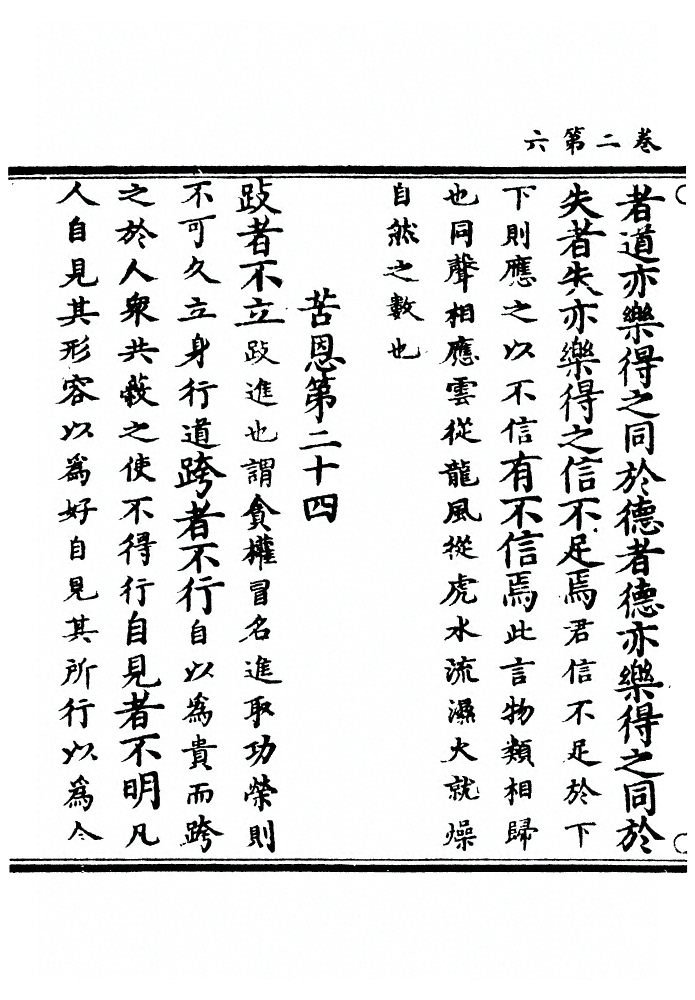 卷二第六
者道亦樂得之同於德者德亦樂得之同於
失者失亦樂得之信不足焉君信不足於下
下則應之以不信有不信焉此言物類相歸
也同聲相應雲從龍風從虎水流濕火就燥
自然之數也
苦恩第二十四
跂者不立跂進也謂貪權冒名進取功榮則
不可久立身行道跨者不行自以為貴而跨
之於人衆共蔽之使不得行自見者不明凡
人自見其形容以為好自見其所行以為今